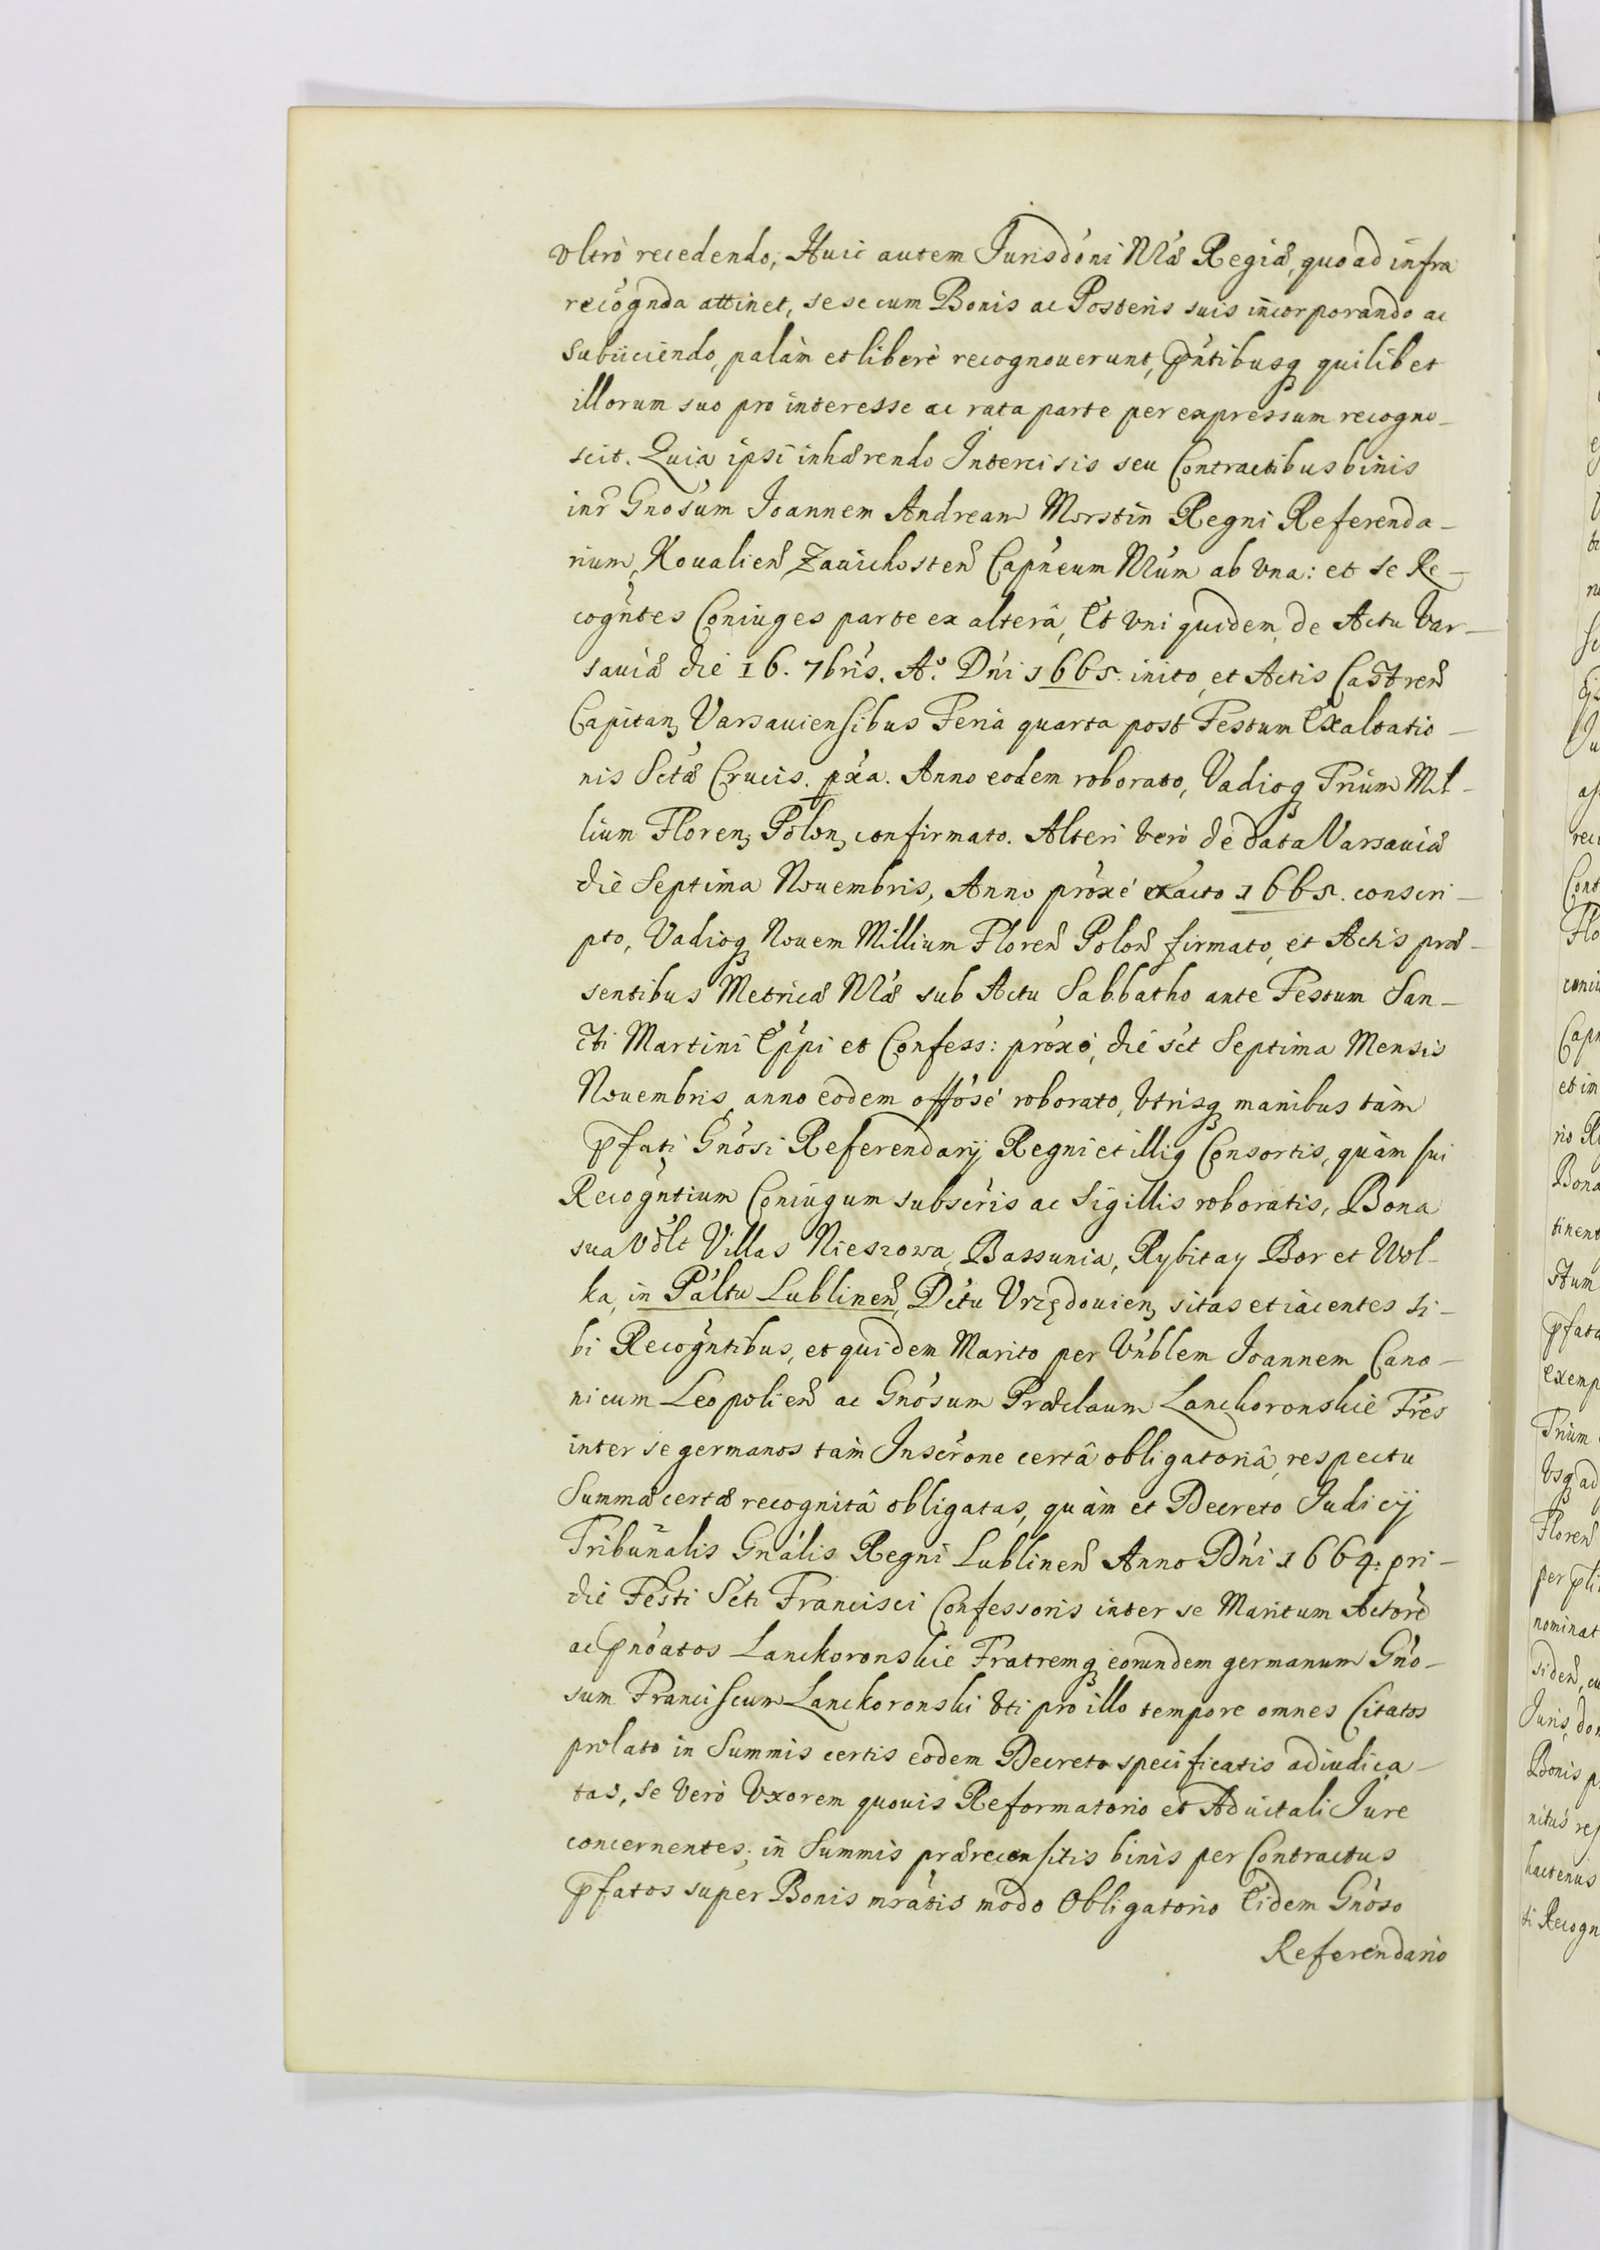 vltrò recedendo, Huic autem Jurisdóni Nrá Regiæ, quoad infra
recógnda attinet, sese cum Bonis ac Posteris suis incorporando ac
subiiciendo, palàm et liberè recognouerunt, pñtibusq quilibet
illorum suo pro interesse ac rata parte per expressum recogno-
scit. Quia ipsi inhærendo Intercisis seu Contractibus binis
inr Gnósum Joannem Andream Morstin Regni Referenda-
rium, Koualien Zauichosten Capneum Nrum ab vna: et se Re-
cogntes Coniuges parte ex alterâ, Et vni quidem, de Actu Var-
sauiæ die 16. 7bris. Aº. Dni 1665. inito, et Actis Castren
Capitan, Varsauiensibus Feria quarta post Festum Exaltatio-
nis Sctæ Crucis. pxa. Anno eodem roborato, Vadioq Trium Mil-
lium Floren, Polon, confirmato. Alteri verò de data Varsauiæ
die Septima Nouembris, Anno próxé exacto 1665. conscri-
pto, Vadioq Nouem Millium Floren Polon firmato, et Actis præ-
sentibus Metricæ Nræ sub Actu Sabbatho ante Festum San-
cti Martini Eppi et Confess: próxo, die sct Septima Mensis
Nouembris, anno eodem offósé roborato, Vtrisq manibus tàm
pfati Gnósi Referendarij Regni et illiq Consortis, quàm sui
Recogntium Coniugum subscris ac Sigillis roboratis, Bona
sua vólt Villas Niesrowa, Bassunia, Rybitay Bor et Wol-
ka, in Páltu Lublinen, Dctu Vrzędouien, sitas et iacentes si-
bi Recogntibus, et quidem Marito per Vnblem Joannem Cano-
nicum Leopolien ac Gnósum Præclaum Lanckoronskie Fres
inter se germanos tàm Inscrone certâ obligatoriâ, respectu
Summæ certæ recognitâ obligatas, quàm et Decreto Judicij
Tribunalis Gnális Regni Lublinen Anno Dni 1664. pri-
die Festi Scti Francisci Confessoris inter se Maritum Actore
ac pnóatos Lanckoronskie Fratremq eorundem germanum Gno-
sum Franciscum Lanckoronski vti pro illo tempore omnes Citatos
prolato in Summis certis eodem Decreto specificatis adiudica-
tas, se verò Vxorem quouis Reformatorio et Aduitali Jure
concernentes; in Summis prærecensitis binis per Contractus
pfatos super Bonis mrátis modo Obligatorio Eidem Gnóso
Referendario